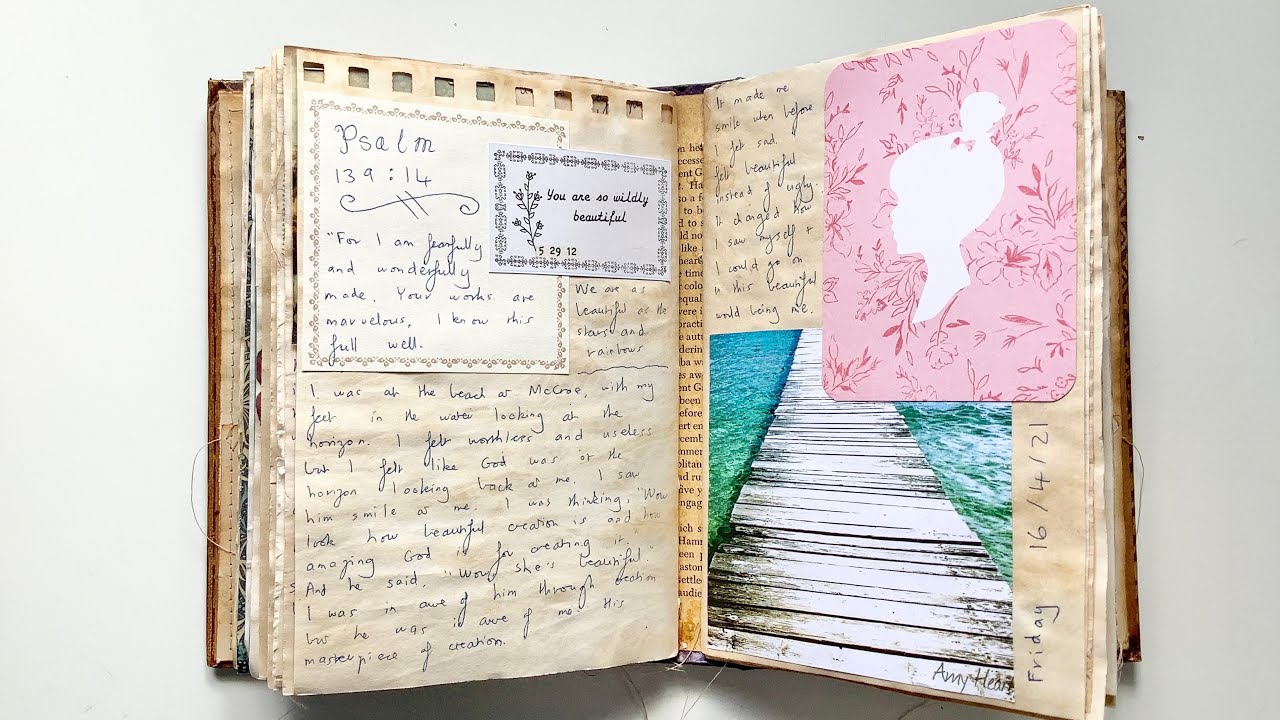 Psalm
139:14
"For I am fearfully
and wonderfully
made. Your works are
marvelous, I know this
full well.
You are so wildly
beautiful
5 29 12
We are as
beautiful as the
stars and
rainbows
I was at the beach at McCrae, with my
feet in the water looking at the
horizon. I felt worthless and useless
but I felt like God was at the
horizon looking back at me. I saw
him smile at me. I was thinking, "Wow
look how beautiful creation is and how
amazing God is for creating it."
And he said, "Wow, she's beautiful."
I was in awe of him through creation
but he was in awe of me: His
masterpiece of creation.
It made me
smile when before
I felt sad.
felt beautiful
instead of ugly.
It changed how
I saw myself +
I could go on
in this beautiful
world being me.
Friday 16/4/21
Amy Heart